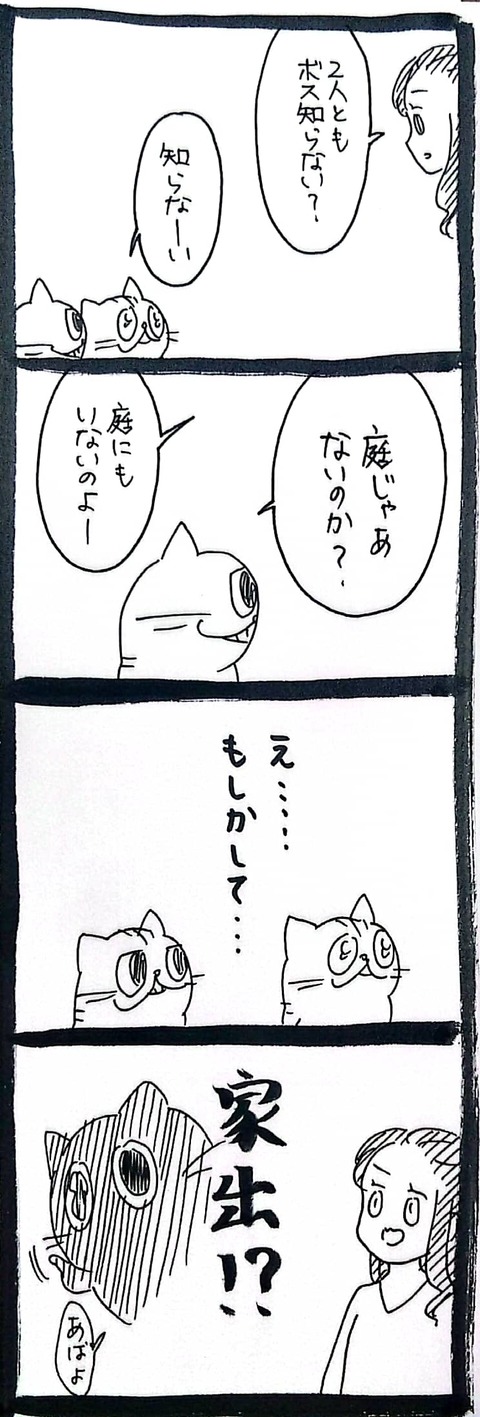 2人とも
ボス知らない？
知らなーい
庭じゃあ
ないのか？
庭にも
いないのよー
え……
もしかして…
家出!?
あばよ